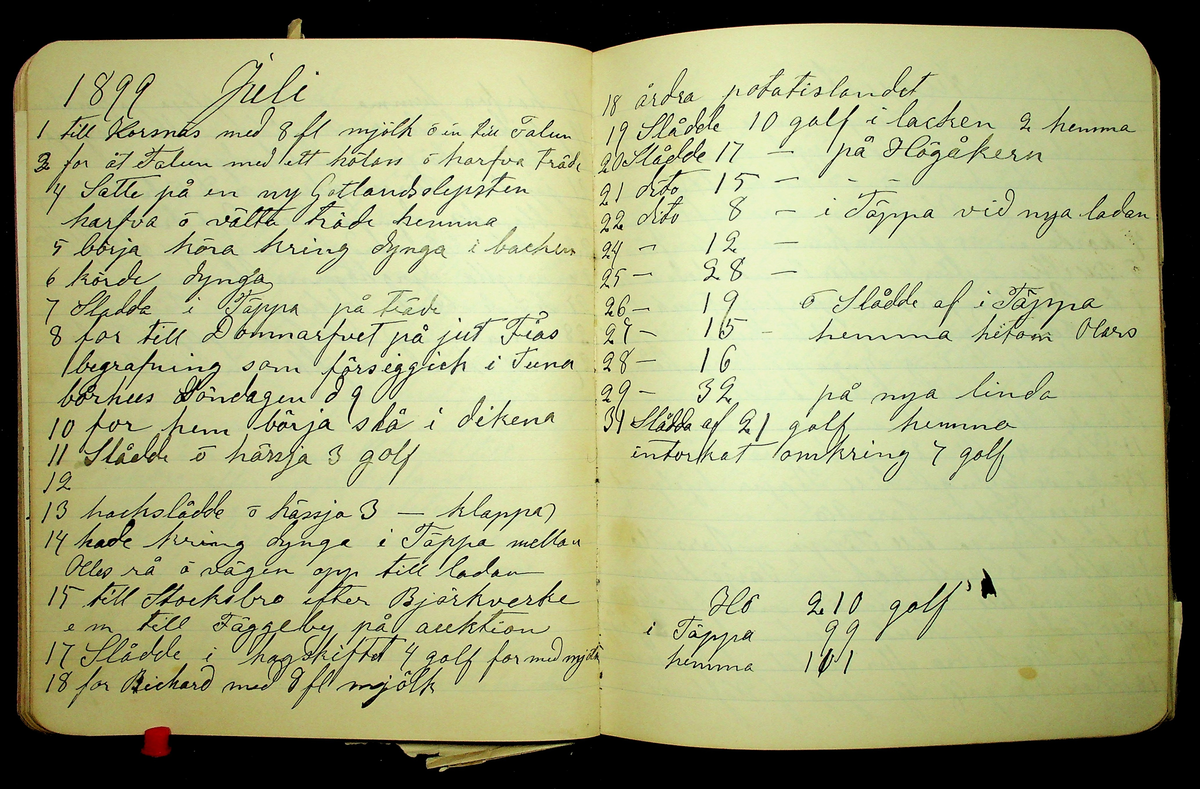 1899 Juli
1 till Horsnäs med 8 fl mjölk o in till Falun
2 for åt Falun med ett hölass o harfva träde
4 Satte på en ny Gotlandslipsten
harfva o välta träde hemma
5 börja köra kring dynga i backen
6 körde dynga
7 Sladda i Täppa på träde
8 for till Domnarfvet på
begrafning som försiggick i Tuna
Söndagen d 9
10 for hem börja slå i dikena
11 Slådde o hässja 3 golf
12
13 hackslådde o hässja 3 — klappa
14 hade kring dynga i Täppa mellan
Olles rå o vägen opp till ladan
15 till Stocksbro efter Björkverke
e m till Fäggeby på auktion
17 Slådde i hagskiftet 4 golf for med mjölk
18 for Rickard med 8 fl mjölk
18 årdra potatislandet
19 Slådde 10 golf i lacken 2 hemma
20 Slådde 17 — på Högåkern
21 dito 15 — - -
22 dito 8 — i Täppa vid nya ladan
24 — 12 —
25 — 28 —
26 — 19 o Slådde af i Täppa
27 — 15 - hemma hitom Olars
28 — 16
29 — 32 på nya linda
31 Slådda af 21 golf hemma
intorkat omkring 7 golf
Hö 210 golf
i Täppa 99
hemma 111